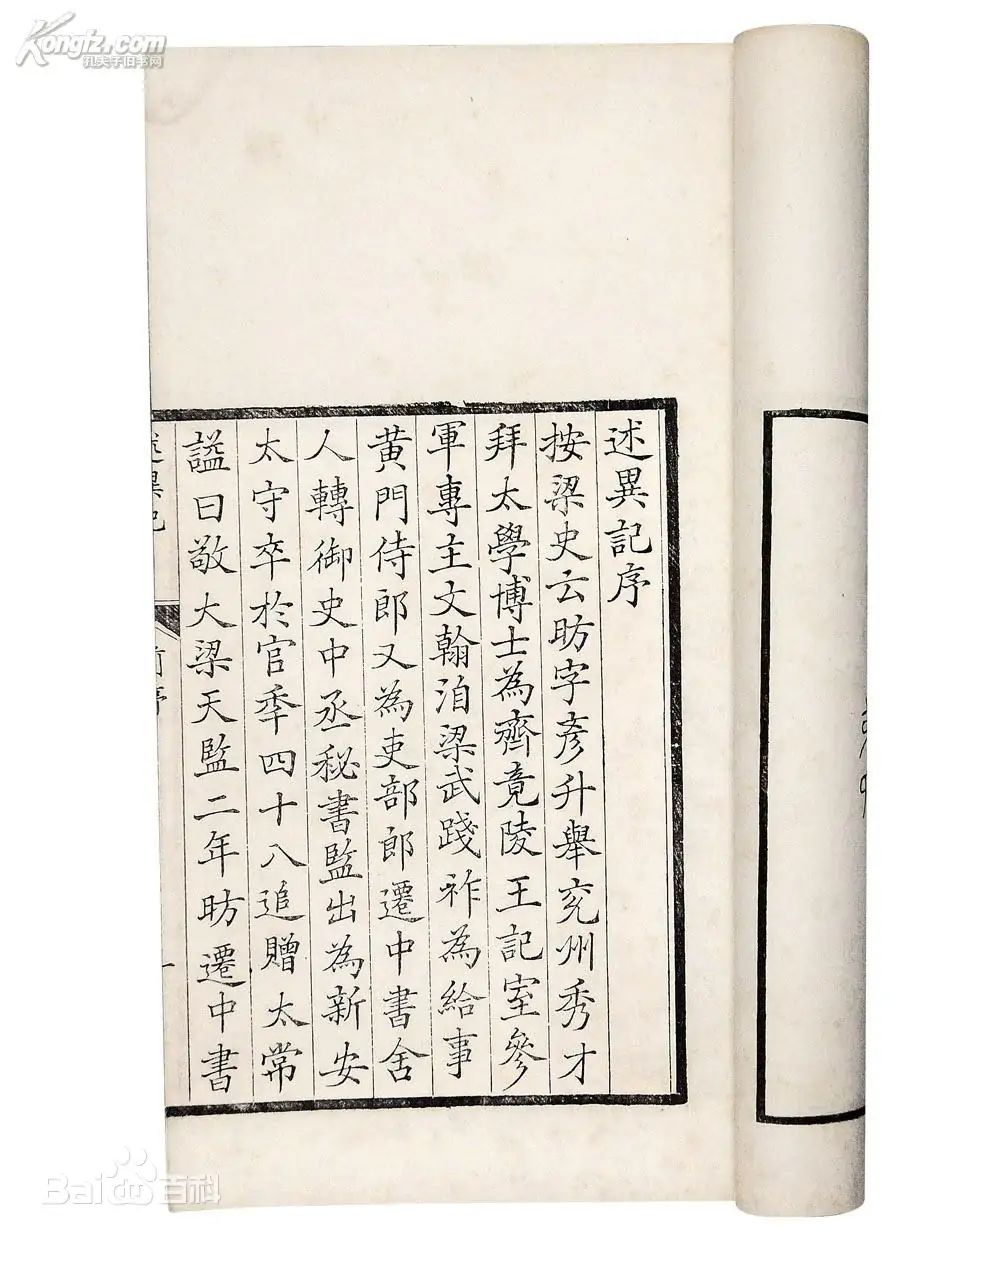 述異記序
按梁史云昉字彥升舉兖州秀才
拜太學博士為齊竟陵王記室參
軍專主文翰洎梁武踐祚為給事
黃門侍郎又為吏部郎遷中書舍
人轉御史中丞秘書監出為新安
太守卒於官秊四十八追贈太常
謚曰敬大梁天監二年昉遷中書
述異記
前序
一
Kongfz.com
孔夫子旧书网
Bai 百科